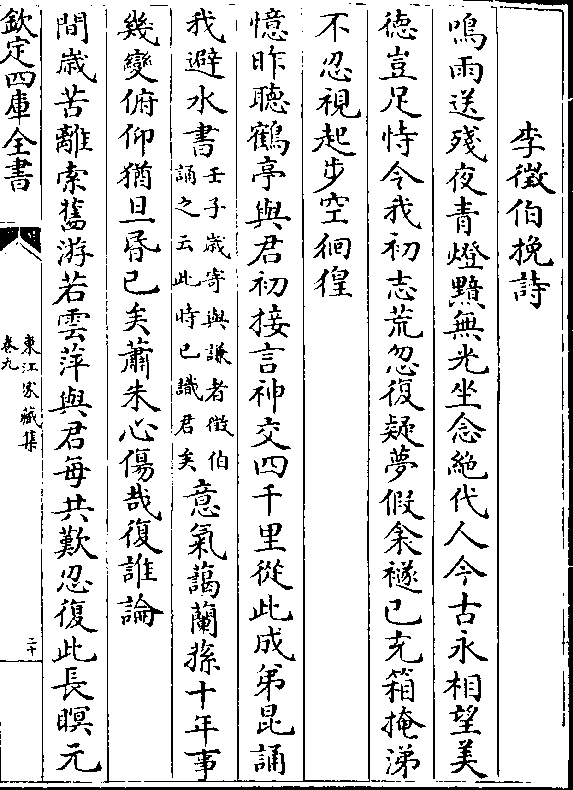 李徵伯挽詩
鳴雨送殘夜青燈黯無光坐念絶代人今古永相望美
德豈足恃令我初志荒忽復疑夢假衾襚已充箱掩涕
不忍視起步空徊徨
憶昨聽鶴亭與君初接言神交四千里從此成弟昆誦
我避水書壬子歳寄與謙者徵伯
誦之云此時已識君矣意氣藹蘭蓀十年事
幾變俯仰猶旦昬已矣蕭朱心傷哉復誰論
間歳苦離索舊游若雲萍與君每共歎忍復此長瞑元
欽定四庫全書
東江家藏集
卷九
二十